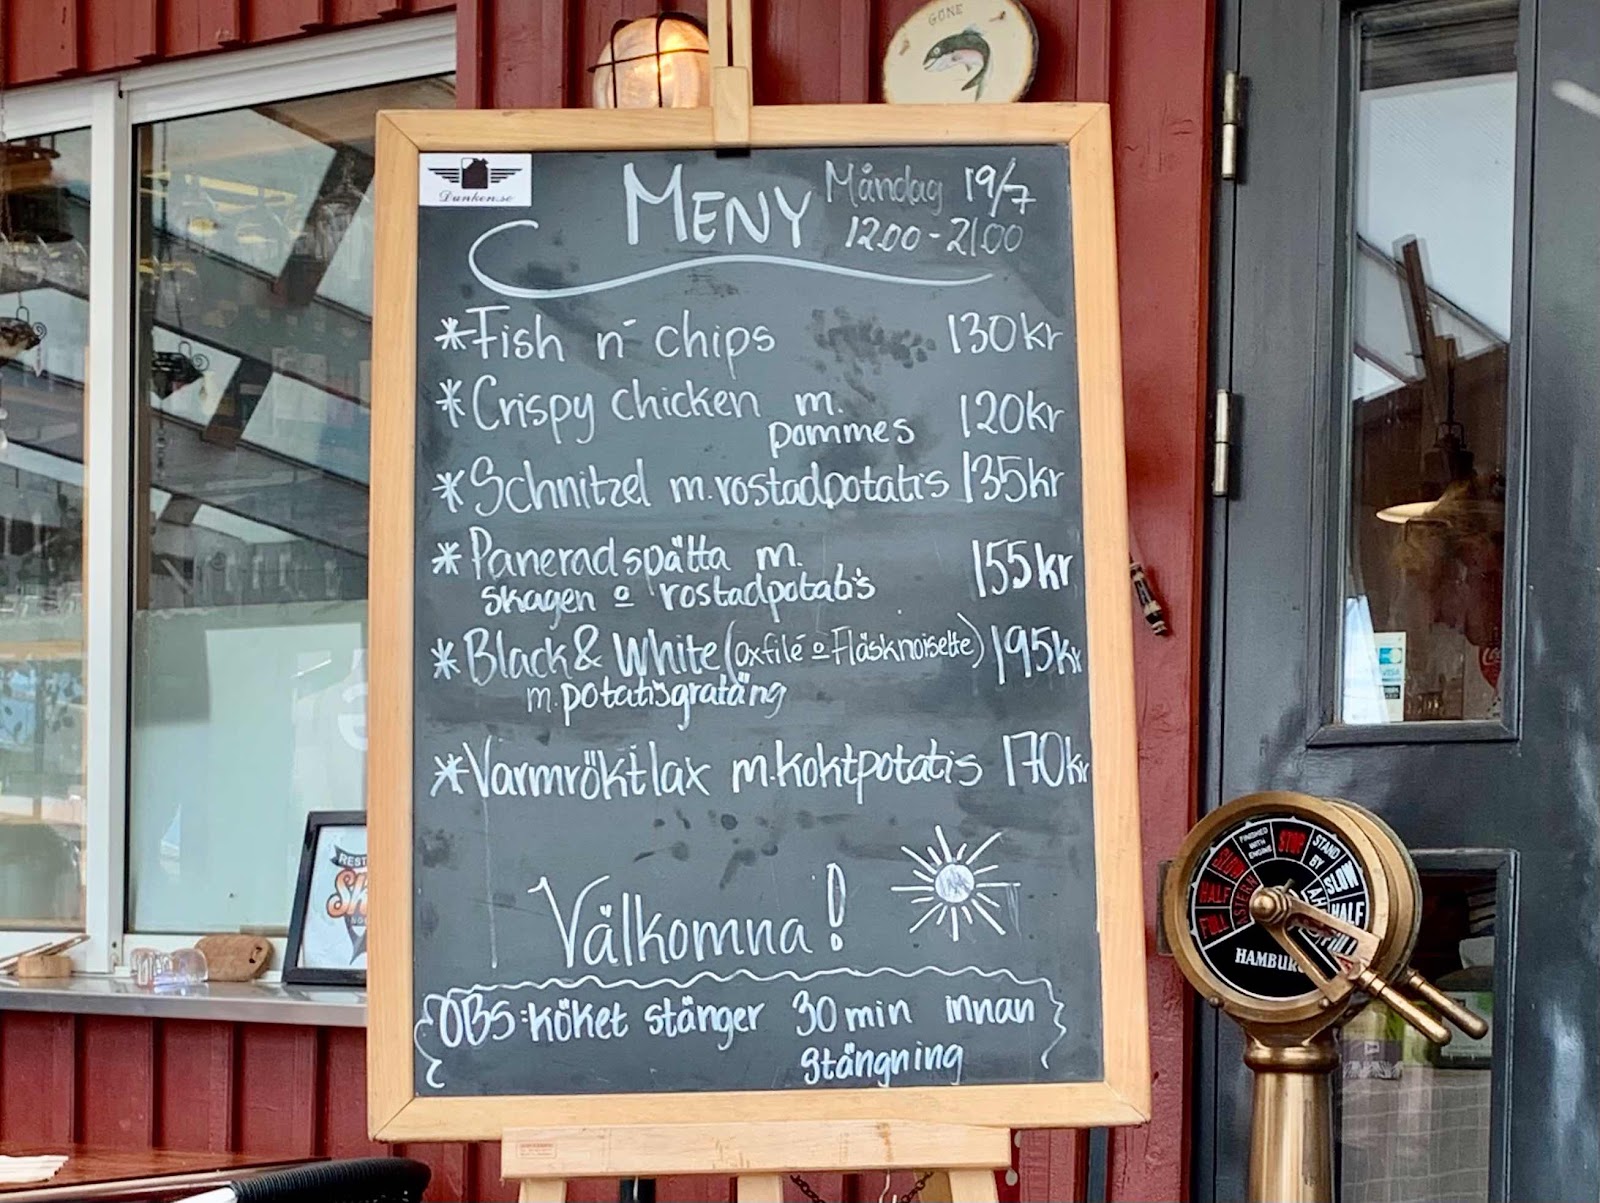 GÖNE
Dunken.se
MENY
Måndag 19/7
12.00 - 21.00
*Fish n´ chips 130kr
*Crispy chicken m. pommes 120kr
*Schnitzel m. rostadpotatis 135kr
*Panerad spätta m.
skagen o rostadpotatis 155kr
*Black & White (oxfilé o Fläsknoisette) 195kr
m. potatisgratäng
*Varmrökt lax m. koktpotatis 170kr
Välkomna!
OBS: köket stänger 30 min innan
stängning
REST
FINISHED WITH ENGINE
STOP
STAND BY
SLOW
HALF
FULL
SLOW
HALF
FULL
ASTERN
AH
HAMBUR
VISA